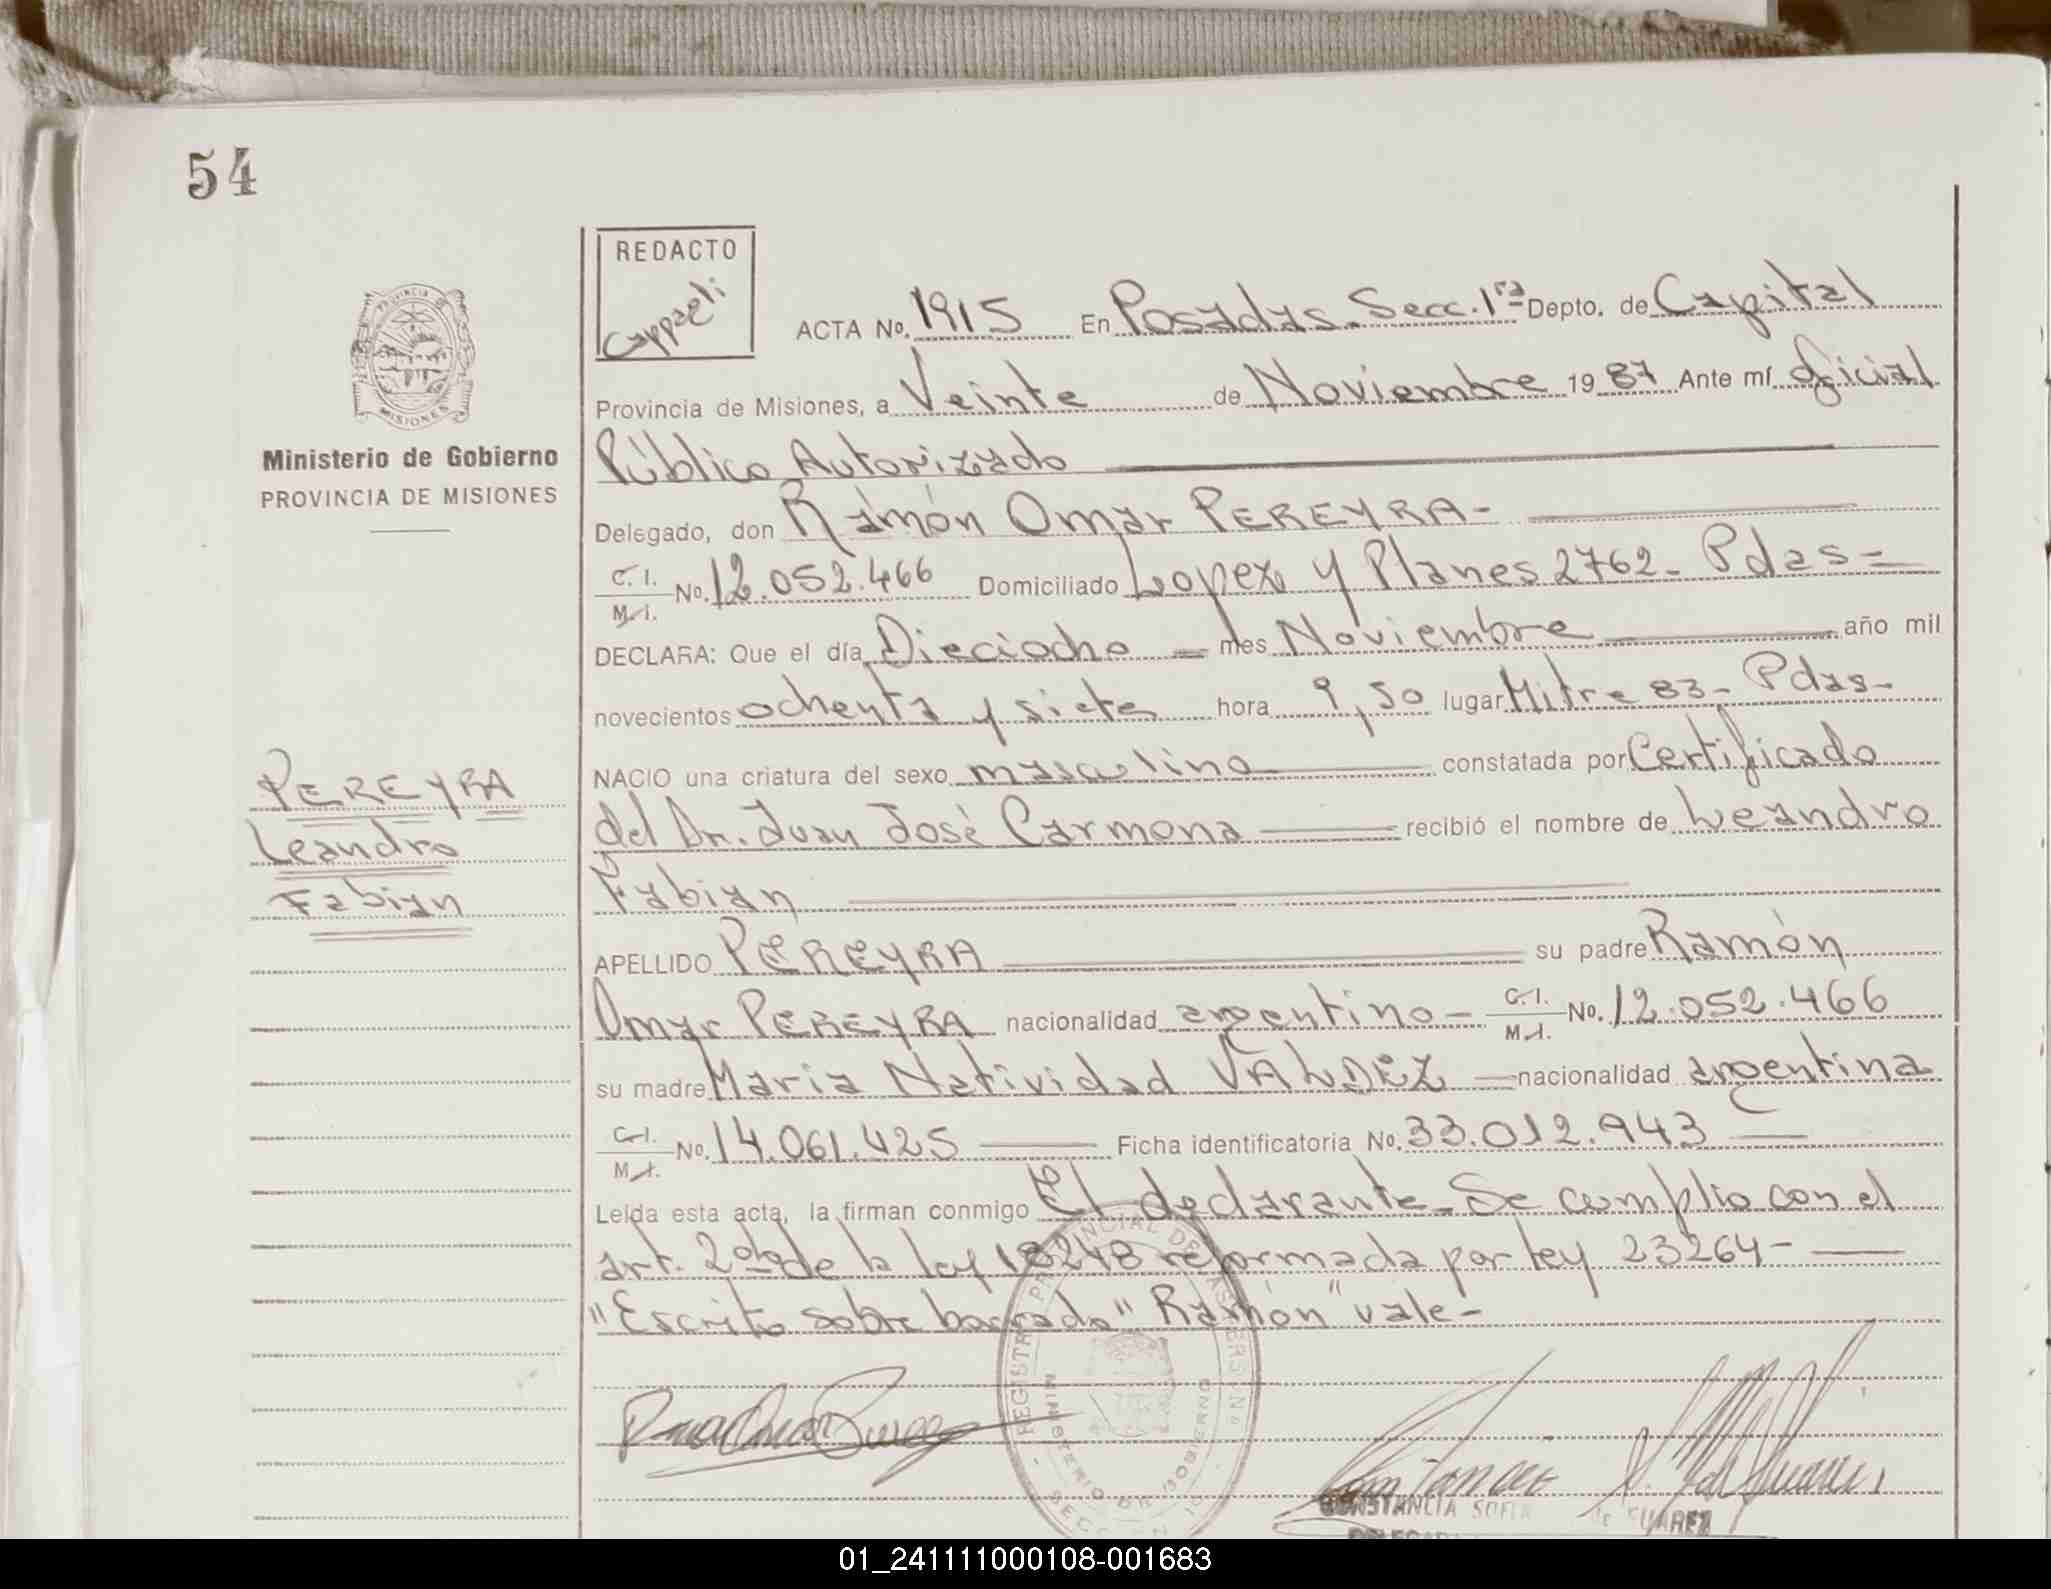 54
REDACTO
Cappaeli
PROVINCIA DE
MISIONES
Ministerio de Gobierno
PROVINCIA DE MISIONES
ACTA No. 1915 En Posadas. Secc. 1ra Depto. de Capital
Provincia de Misiones, a Veinte de Noviembre 1987 Ante mí Oficial
Público Autorizado
Delegado, don Ramón Omar PEREYRA-
C.I. M.I. No. 12.052.466 Domiciliado Lopez y Planes 2762- Pdas-
DECLARA: Que el día Dieciocho mes Noviembre año mil
novecientos ochenta y siete hora 9,50 lugar Mitre 83- Pdas-
NACIO una criatura del sexo masculino constatada por Certificado
del Dr. Juan José Carmona recibió el nombre de Leandro
Fabian
APELLIDO PEREYRA su padre Ramón
Omar PEREYRA nacionalidad argentino- C.I. M.I. No. 12.052.466
su madre Maria Natividad VALDEZ nacionalidad argentina
C.I. M.I. No. 14.061.425 Ficha identificatoria No. 33.012.943
Leída esta acta, la firman conmigo El declarante. Se cumplio con el
art. 2º de la ley 18248 reformada por ley 23264-
"Escrito sobre borrado" Ramón" vale-
PEREYRA
Leandro
Fabian
MINISTERIO DE GOBIERNO
CONSTANCIA SOFIA de SUAREZ
01_241111000108-001683